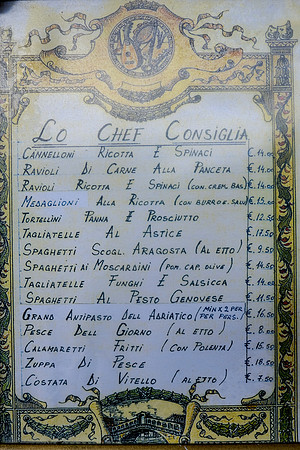 Lo Chef Consiglia
Cannelloni Ricotta E Spinaci €.14.00
Ravioli Di Carne Alla Panceta €.14.00
Ravioli Ricotta E Spinaci (con. crem. Bas) €.14.00
Medaglioni Alla Ricotta (con burro e. sal) €.13.00
Tortellini Panna E Prosciutto €.12.50
Tagliatelle Al Astice €.17.50
Spaghetti Scogl. Aragosta (Al etto) €.9.50
Spaghetti ai Moscardini (pom. cap. olive) €.14.50
Tagliatelle Funghi E Salsicca €.14.00
Spaghetti Al Pesto Genovese €.11.50
Grand Antipasto Dell Adriatico (Min x 2 per per pers.) €.16.50
Pesce Dell Giorno (al etto) €.8.00
Calamaretti Fritti (con Polenta) €.15.50
Zuppa Di Pesce €.18.50
Costata Di Vitello (al etto) €.7.50